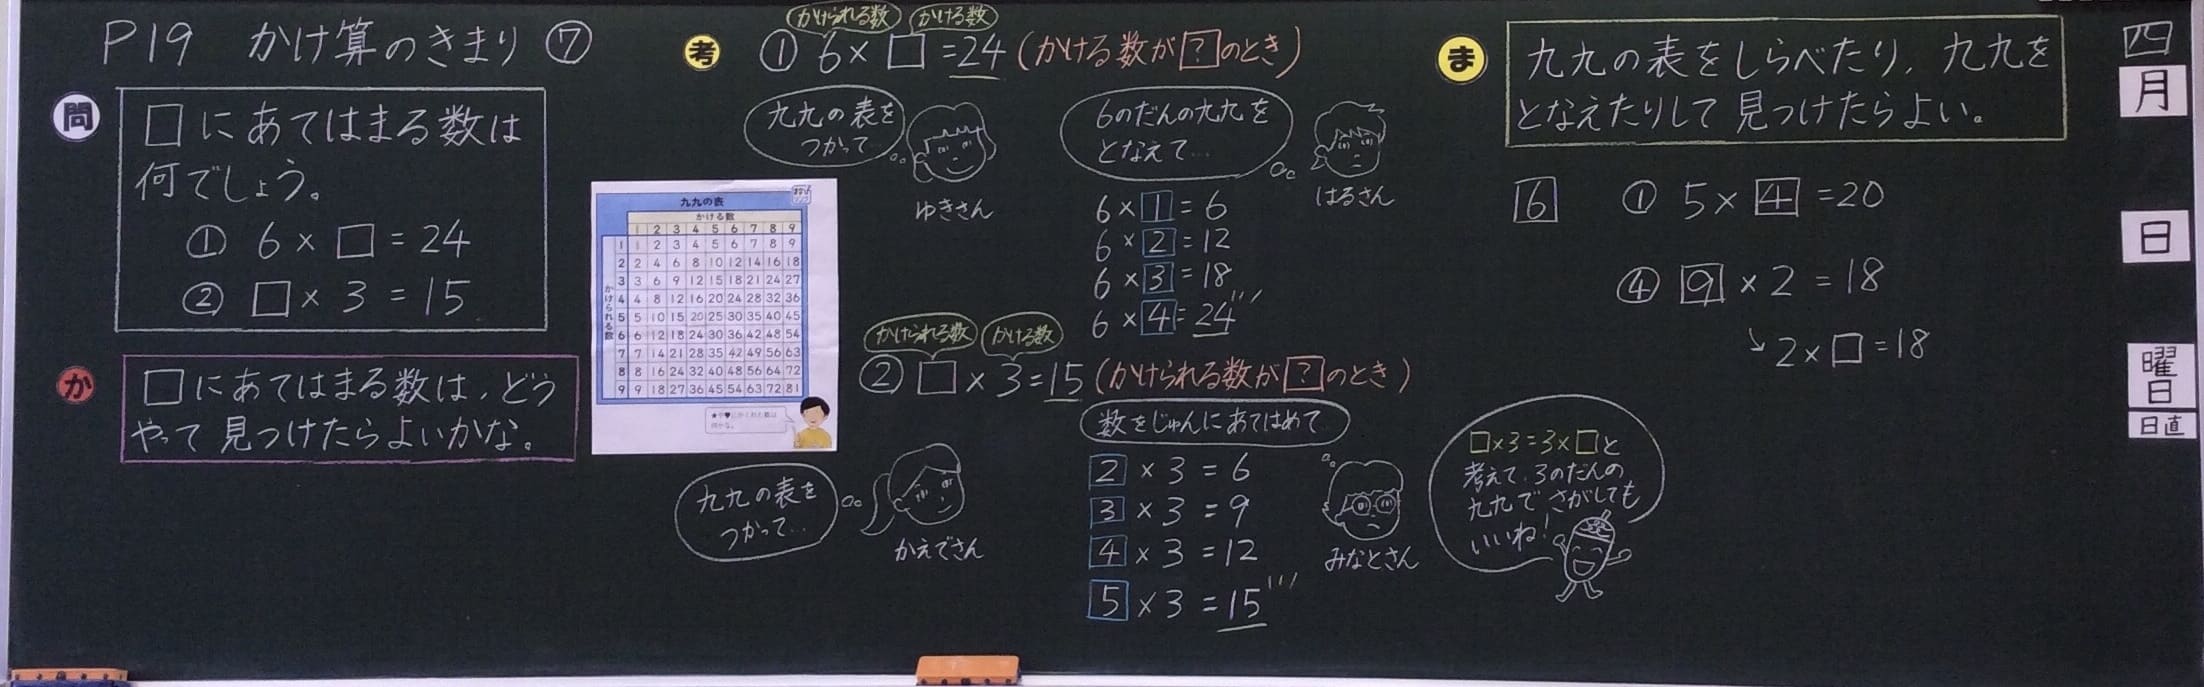 P19 かけ算のきまり ⑦
問
□にあてはまる数は
何でしょう。
① 6 × □ = 24
② □ × 3 = 15
か
□にあてはまる数は、どう
やって見つけたらよいかな。
九九の表
かける数
1 2 3 4 5 6 7 8 9
かけられる数
1 1 2 3 4 5 6 7 8 9
2 2 4 6 8 10 12 14 16 18
3 3 6 9 12 15 18 21 24 27
4 4 8 12 16 20 24 28 32 36
5 5 10 15 20 25 30 35 40 45
6 6 12 18 24 30 36 42 48 54
7 7 14 21 28 35 42 49 56 63
8 8 16 24 32 40 48 56 64 72
9 9 18 27 36 45 54 63 72 81
考
かけられる数 かける数
① 6 × □ = 24 (かける数が?のとき)
九九の表を
つかって…
ゆきさん
6のだんの九九を
となえて…
はるさん
6 × 1 = 6
6 × 2 = 12
6 × 3 = 18
6 × 4 = 24
かけられる数 かける数
② □ × 3 = 15 (かけられる数が?のとき)
九九の表を
つかって…
かえでさん
数をじゅんにあてはめて
2 × 3 = 6
3 × 3 = 9
4 × 3 = 12
5 × 3 = 15
みなとさん
□×3=3×□と
考えて、3のだんの
九九でさがしても
いいね!
ま
九九の表をしらべたり、九九を
となえたりして見つけたらよい。
6 ① 5 × 4 = 20
④ 9 × 2 = 18
↘ 2 × □ = 18
四
月
日
曜
日
日直